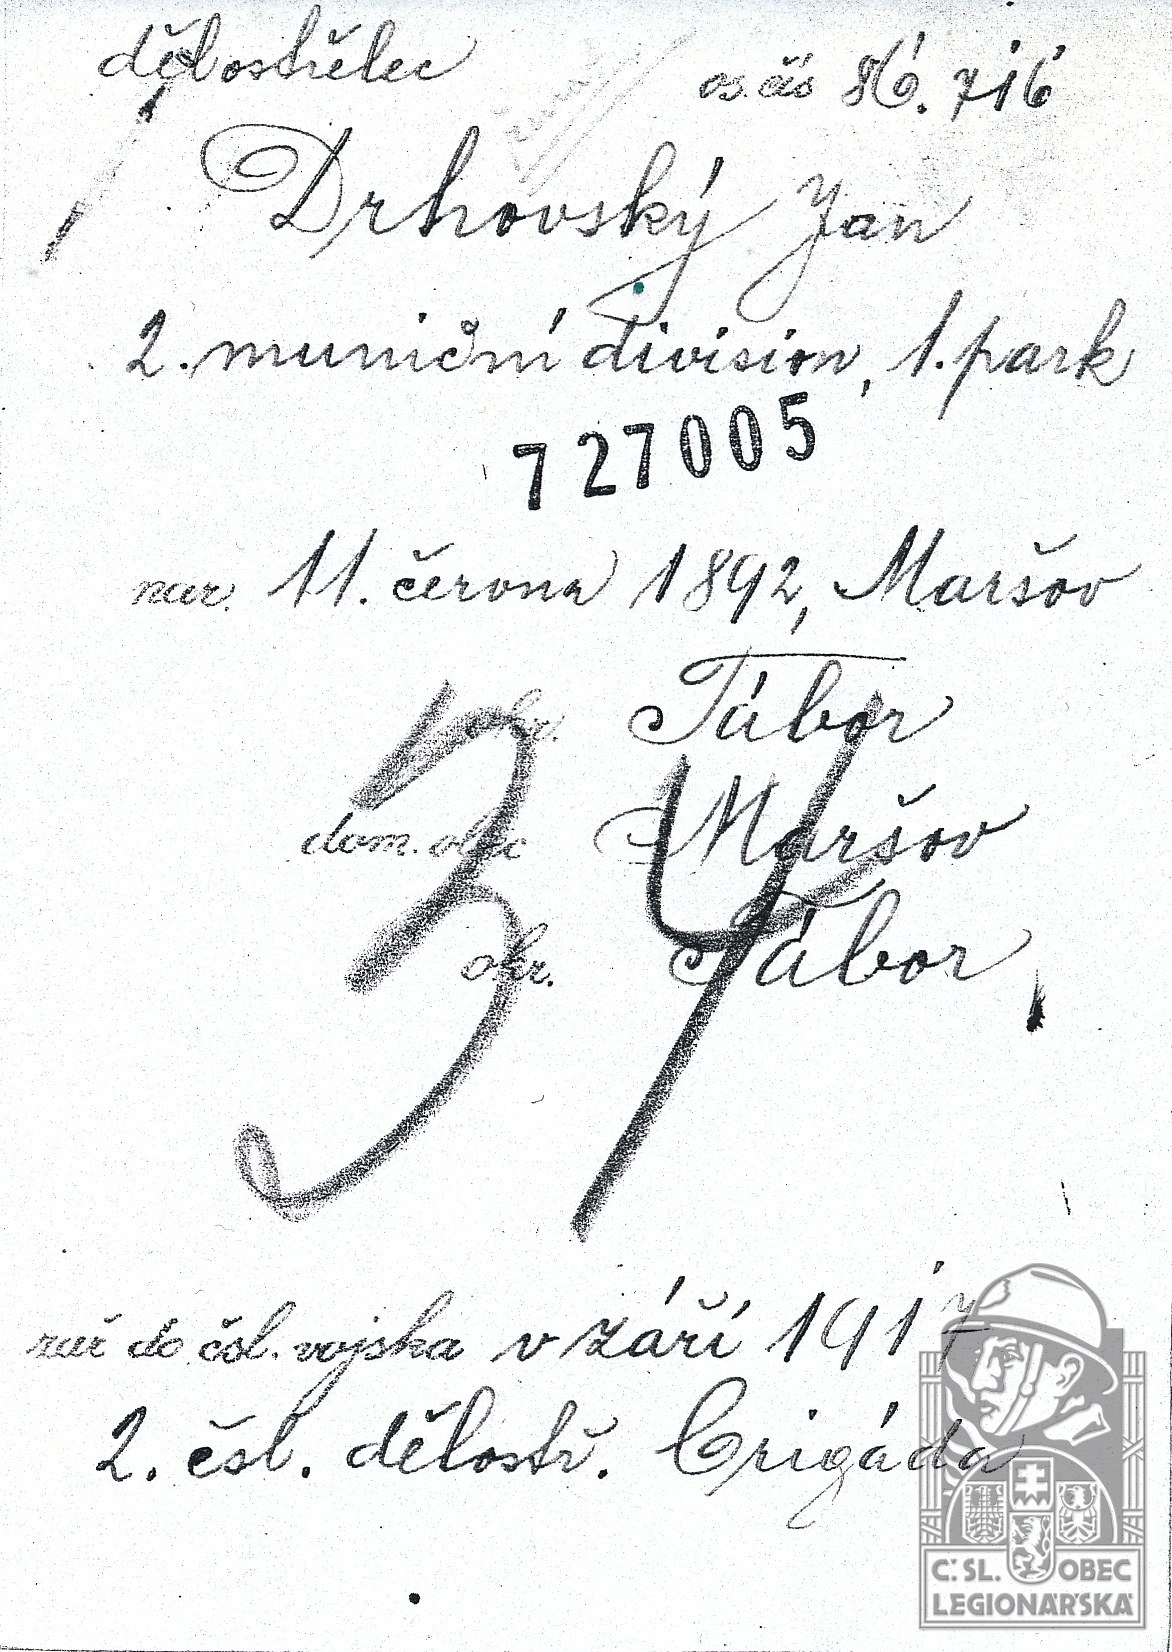 dělostřelec os. čís 86.716
Drhovský Jan
2. muniční division, 1. park
727005
nar. 11. června 1892, Maršov
okr. Tábor
dom. obec Maršov
okr. Tábor
34
zař do čsl. vojska v září 1917
2. čsl. dělostř. brigáda
Č.SL. OBEC
LEGIONÁŘSKÁ